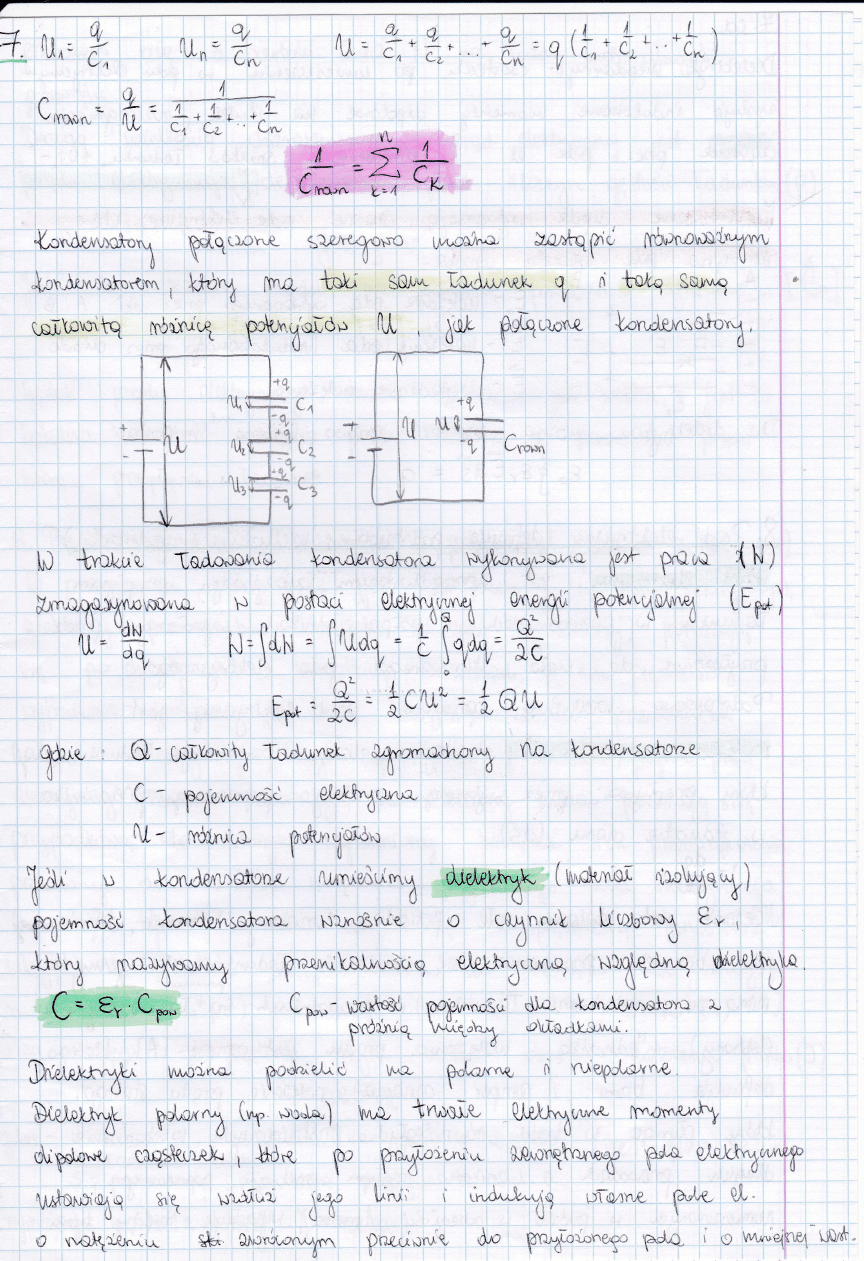 7. U₁ = q/C₁ Uₙ = q/Cₙ U = q/C₁ + q/C₂ + ... + q/Cₙ = q (1/C₁ + 1/C₂ + .. + 1/Cₙ)
Crown = q/U = 1/(1/C₁ + 1/C₂ + .. + 1/Cₙ)
1/Crown = Σ_{k=1}^{n} 1/C_K
Kondensatory połączone szeregowo można zastąpić równoważnym
kondensatorem, który ma taki sam ładunek q i taką samą
całkowitą różnicę potencjałów U, jak połączone kondensatory.
+ - U U₁ +q -q C₁ U₂ +q -q C₂ U₃ +q -q C₃
+ - U U +q -q Crown
W trakcie ładowania kondensatora wykonywana jest praca (W)
zmagazynowana w postaci elektrycznej energii potencjalnej (Epot)
U = dW/dq W = ∫dW = ∫Udq = 1/C ∫₀^Q qdq = Q²/2C
Epot = Q²/2C = 1/2 CU² = 1/2 QU
gdzie : Q - całkowity ładunek zgromadzony na kondensatorze
C - pojemność elektryczna
U - różnica potencjałów
Jeśli w kondensatorze umieścimy dielektryk (materiał izolujący)
pojemność kondensatora wzrośnie o czynnik liczbowy εr,
który nazywamy przenikalnością elektryczną względną dielektryka.
C = εr · Cpow Cpow - wartość pojemności dla kondensatora z
próżnią między okładkami.
Dielektryki można podzielić na polarne i niepolarne.
Dielektryk polarny (np. woda) ma trwałe elektryczne momenty
dipolowe cząsteczek, które po przyłożeniu zewnętrznego pola elektrycznego
ustawiają się wzdłuż jego linii i indukują własne pole el.
o natężeniu zwróconym przeciwnie do przyłożonego pola i o mniejszej wart.